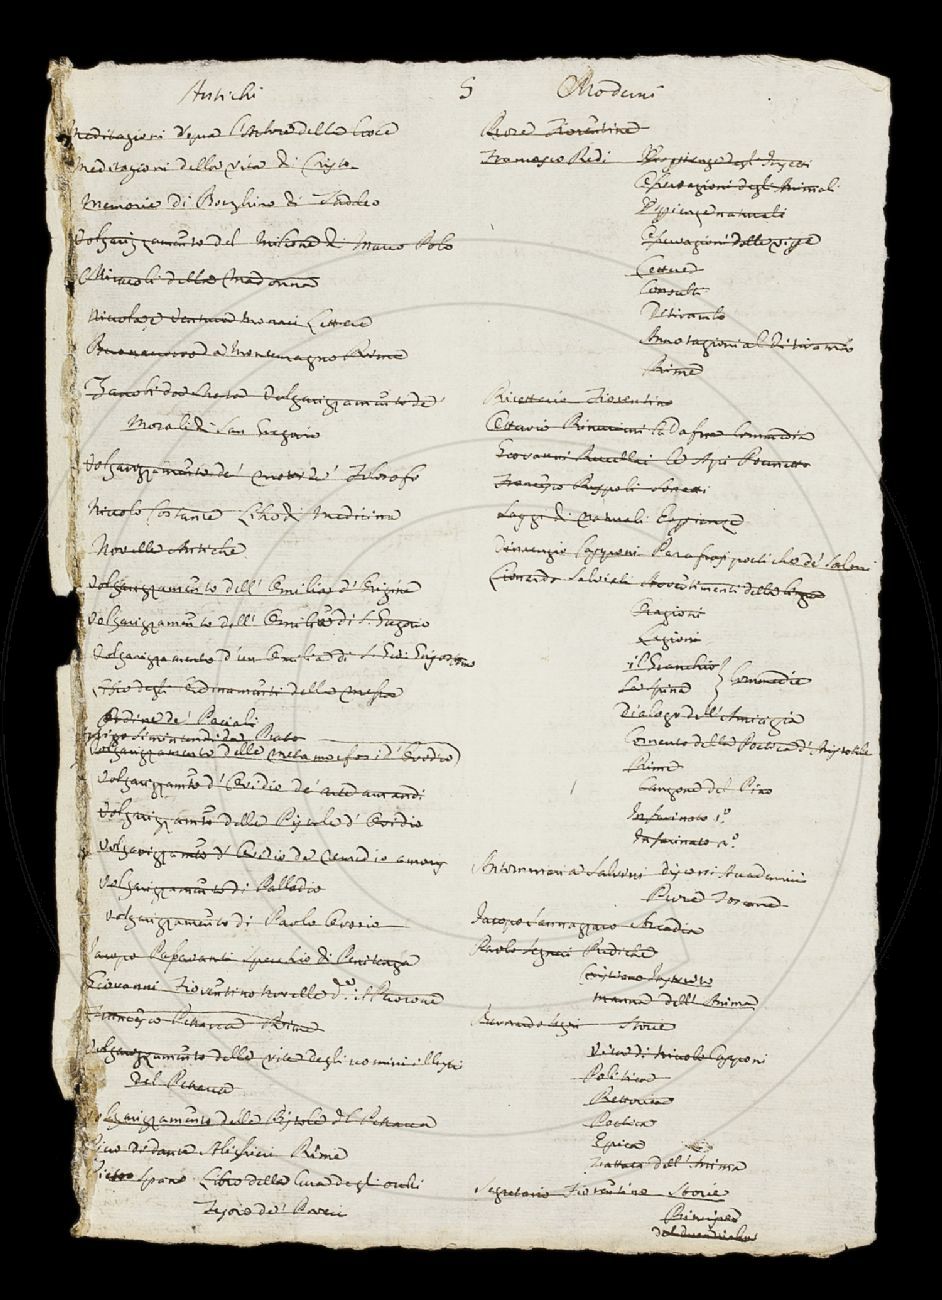 Antichi
Meditazioni sopra l'Arbore della Croce
Meditazioni della vita di Cristo
Memorie di Borghino di Taddeo
Volgarizzamento del Milione di Marco Polo
Miracoli della Madonna
Niccola, e Ventura Monaci Lettere
Buonaccorso da Montemagno Rime
Zanobi da Strata Volgarizzamento de'
Morali di San Gregorio
Volgarizzamento de' Motti de' Filosofi
Niccolo Costante Libro di Medicina
Novelle Antiche
Volgarizzamento dell' Omilia d' Origine
Volgarizzamento dell' Omilie di S. Gregorio
Volgarizzamento d'un Omilia di S. Gio. Grisostomo
Ofizio degli Ordinamenti della Messa
Ordine de' Paciali
Arrigo Simintendi da Prato
Volgarizzamento delle Metamorfosi d' Ovidio
Volgarizzamto d' Ovidio de' arte amandi
Volgarizzamto delle Pistole d' Ovidio
Volgarizzamto d' Ovidio de remedio amoris
Volgarizzamento di Palladio
Volgarizzamento di Paolo Orosio
Jacopo Passavanti Specchio di Penitenza
Giovanni Fiorentino Novelle do. il Pecorone
Francesco Petrarca Rime
Volgarizzamento delle vite degli uomini illustri
del Petrarca
Volgarizzamento delle Pistole del Petrarca
Pietro di Dante Alighieri Rime
Pietro Spano Libro della Cura degli occhi
Tesoro de' Poveri
5
Moderni
Prose Fiorentine
Francesco Redi Esperienze degli Insetti
Osservazioni degli Animali
Esperienze naturali
Osservazioni delle vipere
Lettere
Consulti
Ditirambo
Annotazioni al Ditirambo
Rime
Ricettario Fiorentino
Ottavio Rinuccini la Dafne Commedia
Giovanni Rucellai le Api Poemetto
Francesco Ruspoli Sonetti
Saggi di Naturali Esperienze
Vincenzio Capponi Parafrasi poetiche de' Salmi
Lionardo Salviati Avvertimenti della lingua
Orazioni
Lezioni
il Granchio
La Spina } Commedie
Dialogo dell' Amicizia
Comento della Poetica d' Aristotile
Rime
Canzone del Pino
Infarinato 1.o
Infarinato 2.o
Antonmaria Salvini discorsi Accademici
Prose Toscane
Jacopo Sannazzaro Arcadia
Paolo Segneri Prediche
Cristiano Instruito
Manna dell' Anima
Bernardo Segni Storie
Vita di Niccolo Capponi
Politica
Rettorica
Poetica
Etica
Trattato dell' Anima
Segretario Fiorentino Storie
Principe